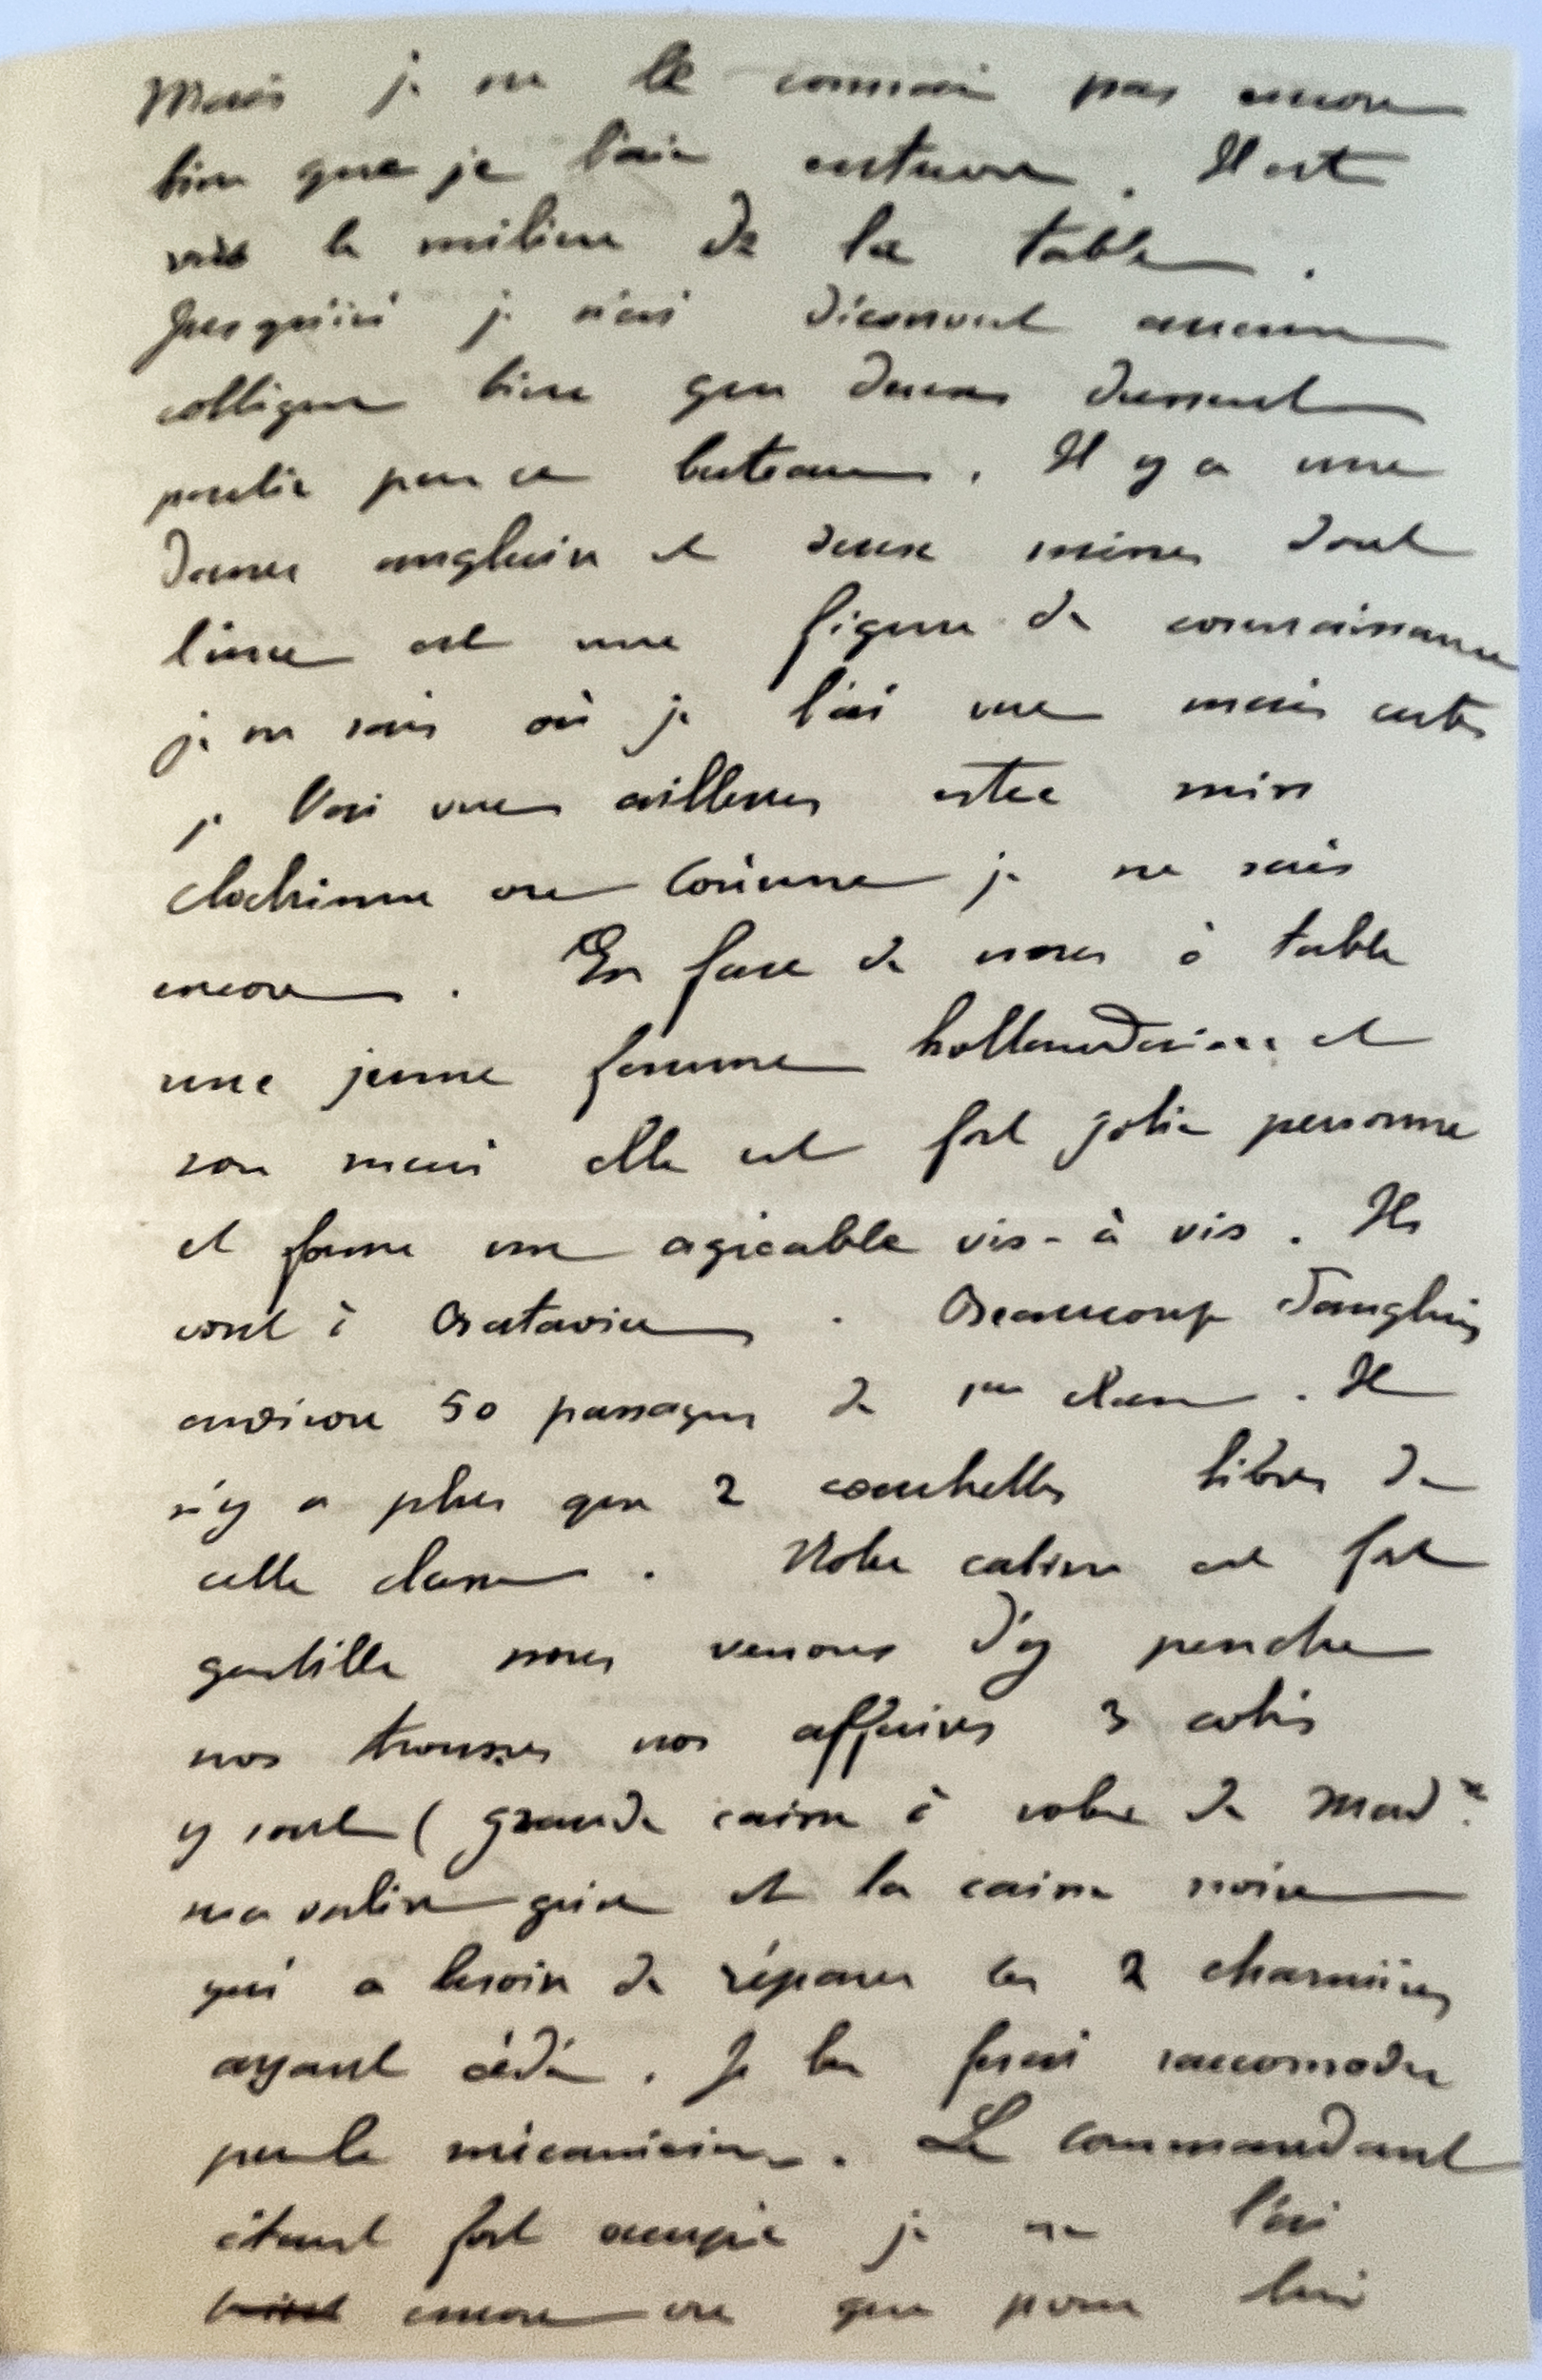 Mais je ne le connai pas encore
bien que je l'aie entrevu. Il est
vers le milieu de la table.
Jusqu'ici je n'ai découvert aucun
collègue bien que deux dussent
partir par ce bateau. Il y a une
dame anglaise et deux misses dont
l'une est une figure de connaissance
je ne sais où je l'ai vue mais certes
je l'ai vue ailleurs est ce miss
ou Corinne je ne sais
encore. En face de nous à table
une jeune femme hollandaise et
son mari elle est fort jolie personne
et forme un agréable vis-à vis. Ils
vont à Batavia. Beaucoup d'anglais
environ 50 passagers de 1ère classe. Il
n'y a plus que 2 couchettes libres de
cette classe. Notre cabine est fort
gentille nous venons d'y pendre
nos trousses nos affaires 3 colis
y sont (grande caisse à robe de Made.
ma valise grise et la caisse noire
qui a besoin de réparer les 2 charnières
ayant cédé. Je les ferai raccomoder
par le mécanicien. Le Commandant
étant fort occupé je ne l'ai
encore vu que pour lui